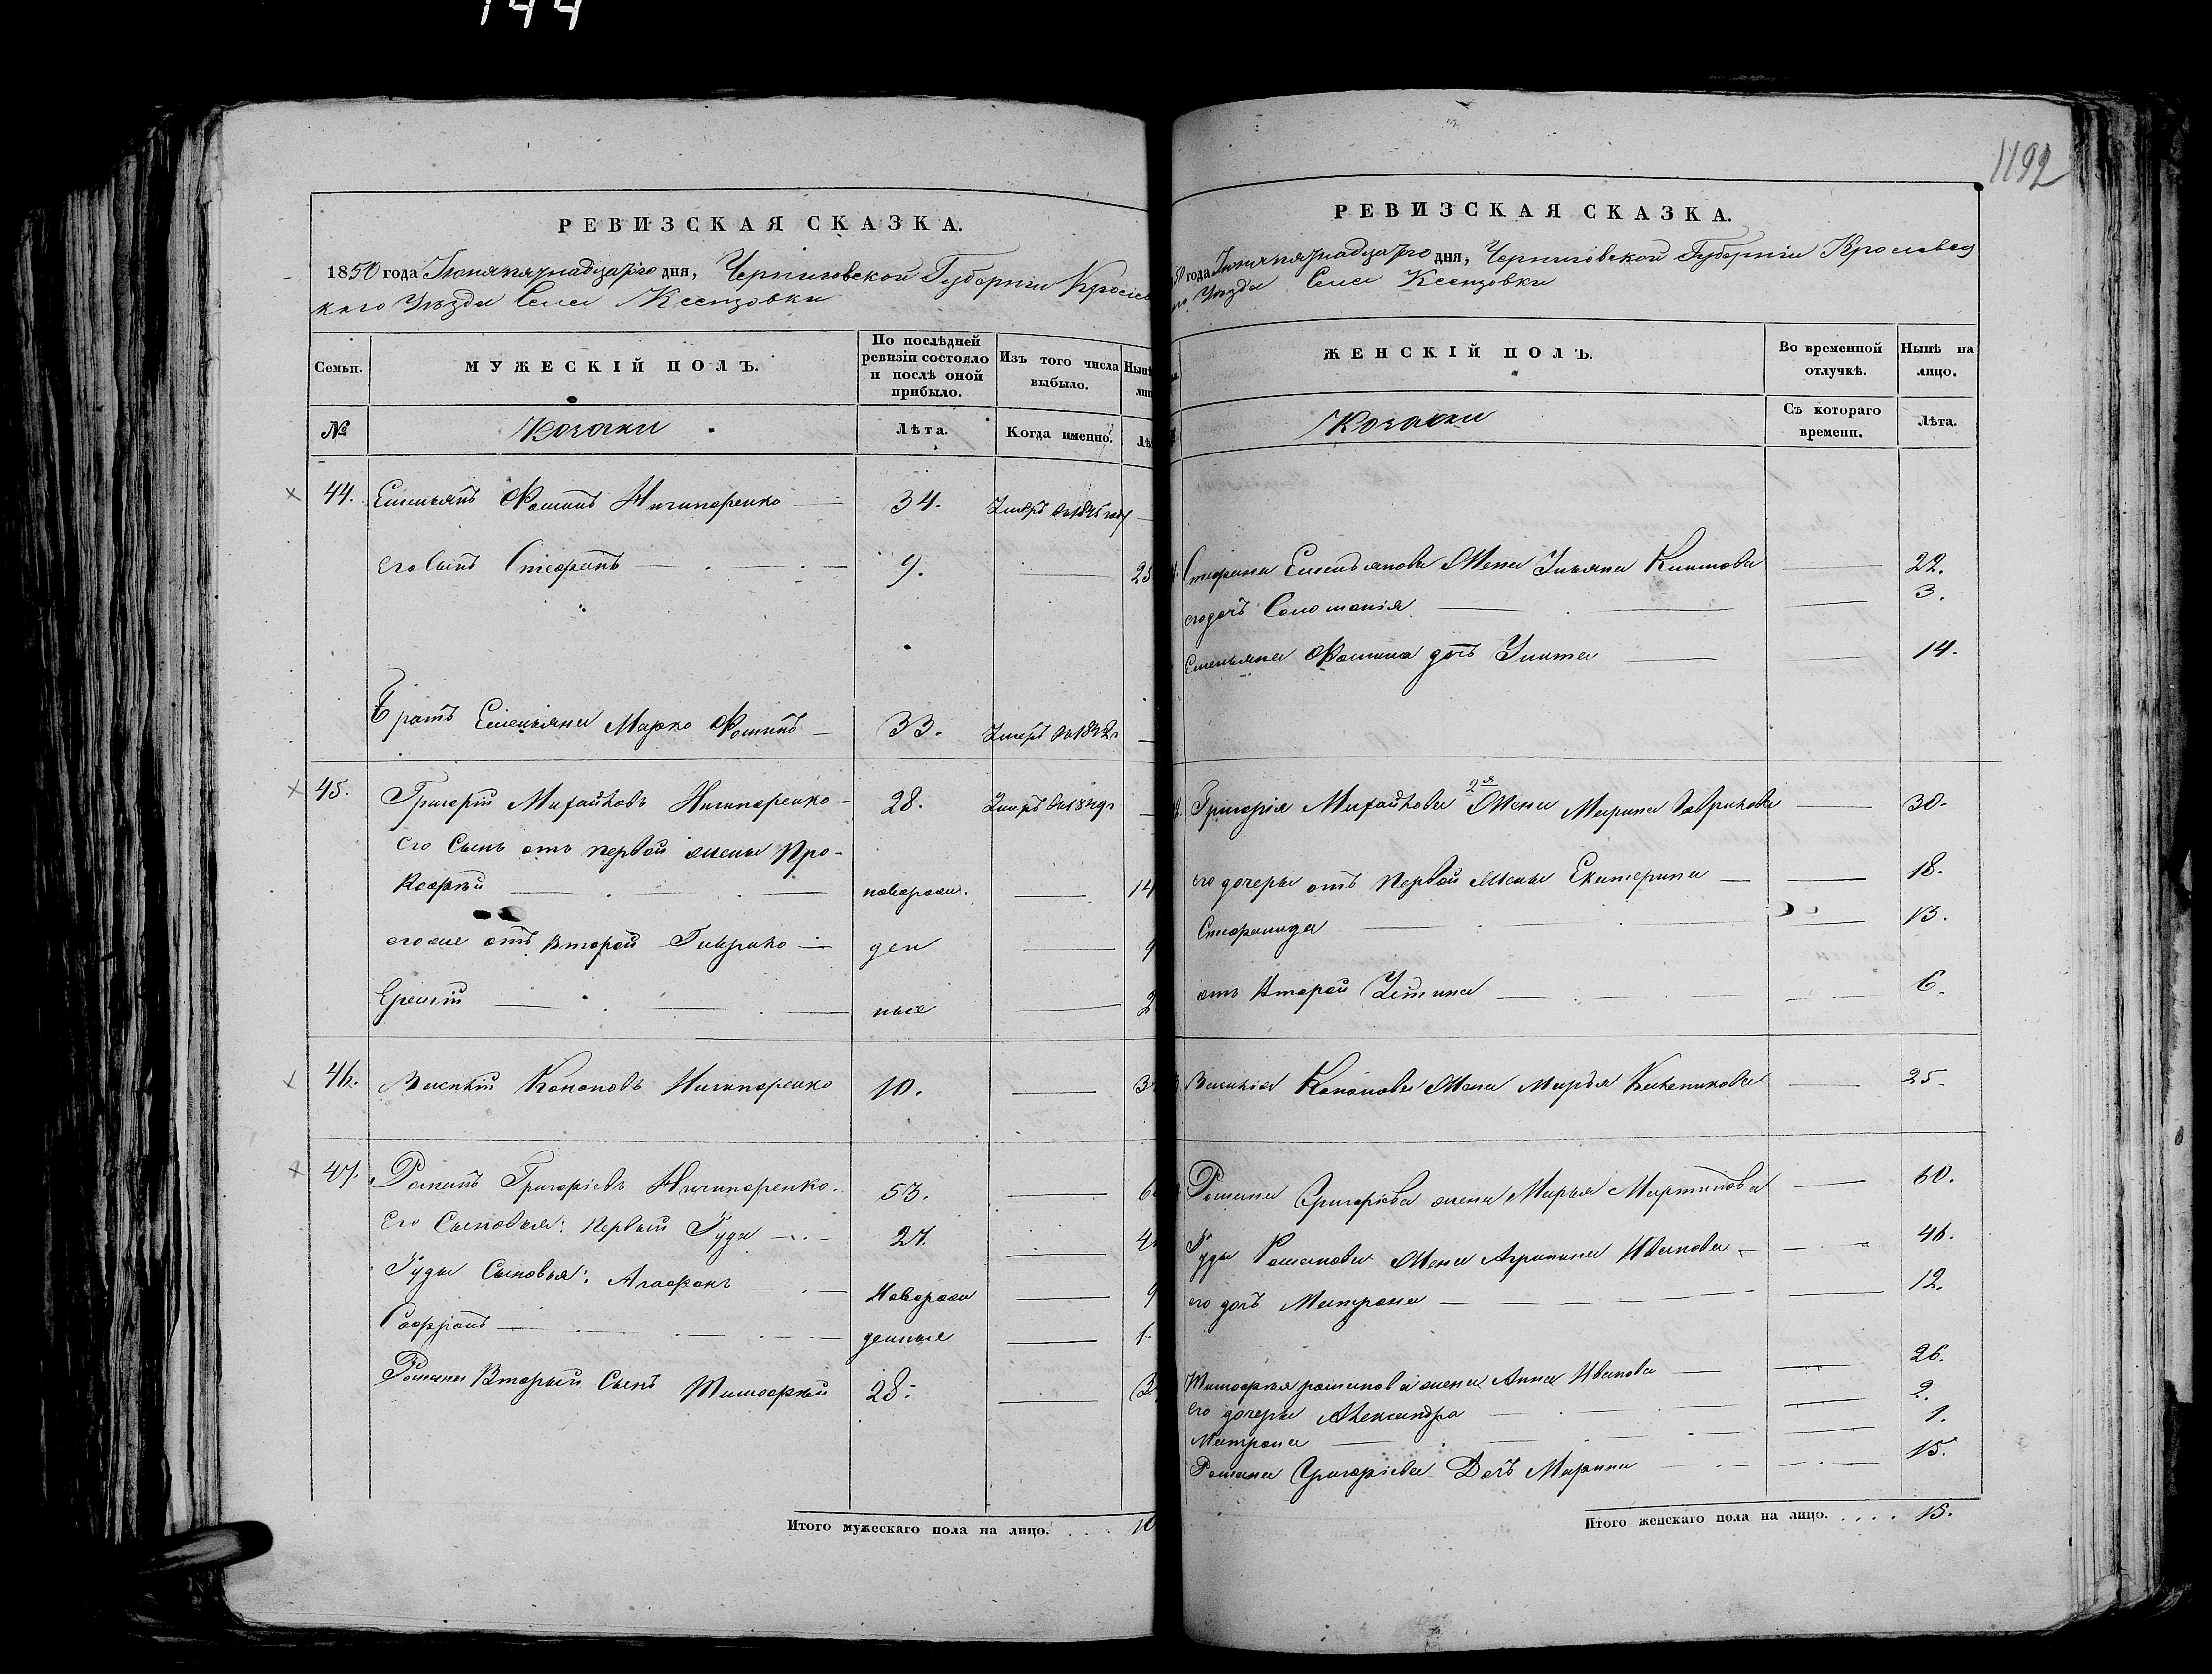 144
1192
РЕВИЗСКАЯ СКАЗКА.
1850 года Іюня пятнадцатаго дня, Черниговской Губерніи Кролев
каго Уѣзда Села Ксензовки
Семьи.
МУЖЕСКІЙ ПОЛЪ.
По послѣдней ревизіи состояло и послѣ оной прибыло.
Изъ того числа выбыло.
№
Козаки
Лѣта.
Когда именно.
44. Емельянъ Фоминъ Ничипоренко 34. Умеръ въ 1845 году
его Сынъ Стефанъ 9. 25
Братъ Емельяна Марко Фоминъ 33. Умеръ въ 1842г
45. Григорій Михайловъ Ничипоренко 28. Умеръ въ 1849г
Его Сынъ отъ первой жены Про-
кофій новорож. 14
его же отъ второй Гаврило ден 9
Еремѣй ные 2
46. Василій Кононовъ Ничипоренко 10. 
47. Романъ Григоріевъ Ничипоренко. 53. 
Его Сыновья: первый Іуда 27. 
Іуды Сыновья: Агафонъ Новорож 9
Софронъ денные 1
Романа Второй Сынъ Тимофѣй 28.
Итого мужескаго пола на лицо. . . . 10
РЕВИЗСКАЯ СКАЗКА.
50 года Іюня пятнадцатаго дня, Черниговской Губерніи Кролевец
Уѣзда Села Ксензовки
ЖЕНСКІЙ ПОЛЪ.
Во временной отлучкѣ.
Нынѣ на лицо.
Козачки
Съ котораго времени.
Лѣта.
Стефана Емельянова Жена Ульяна Климова 22.
его дочь Соломонія 3.
Емельяна Фомина дочь Улита 14.
Григорія Михайлова 2я Жена Марина Гаврилова 30.
его дочери отъ Первой Жены Екатерина 18.
Стефанида 13.
отъ Второй Устина 6.
Василія Кононова Жена Марья 25.
Романа Григоріева жена Марья Мартинова 60.
Іуды Романова Жена Агрипина Иванова 46.
его дочь Матрона 12.
Тимофѣя романова жена Анна Иванова 26.
его дочери Александра 2.
Матрона 1.
Романа Григоріева Дочь Марина 15.
Итого женскаго пола на лицо. . . . . 15.